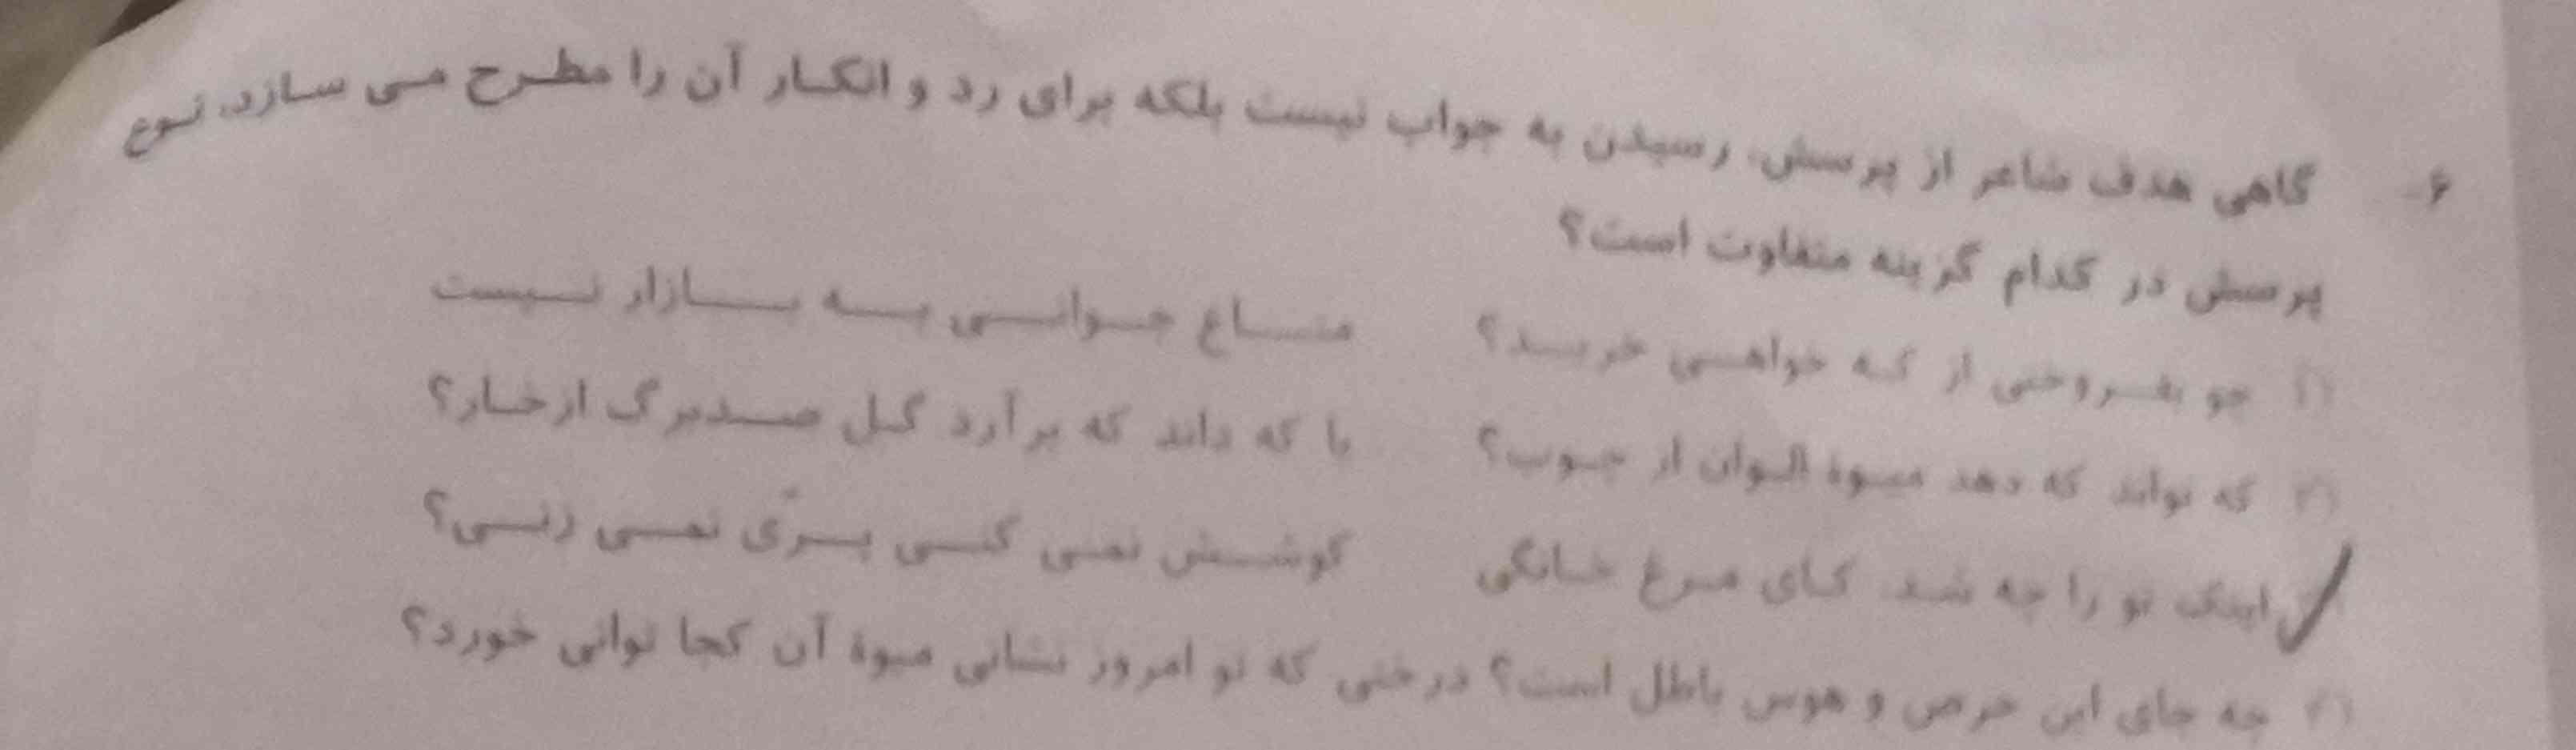 ۶- گاهی هدف شاعر از پرسش، رسیدن به جواب نیست بلکه برای رد و انکار آن را مطرح می سازد، نوع
پرسش در کدام گزینه متفاوت است؟
۱) چو بفروختی از که خواهی خرید؟ متاع جوانی به بازار نیست
۲) که تواند که دهد میوهٔ الوان از چوب؟ یا که داند که بر آرد گل صدبرگ از خار؟
اینک تو را چه شد، کای مرغ خانگی کوشش نمی کنی پرّی نمی زنی؟
۴) چه جای این حرص و هوس باطل است؟ درختی که تو امروز نشانی میوهٔ آن کجا توانی خورد؟